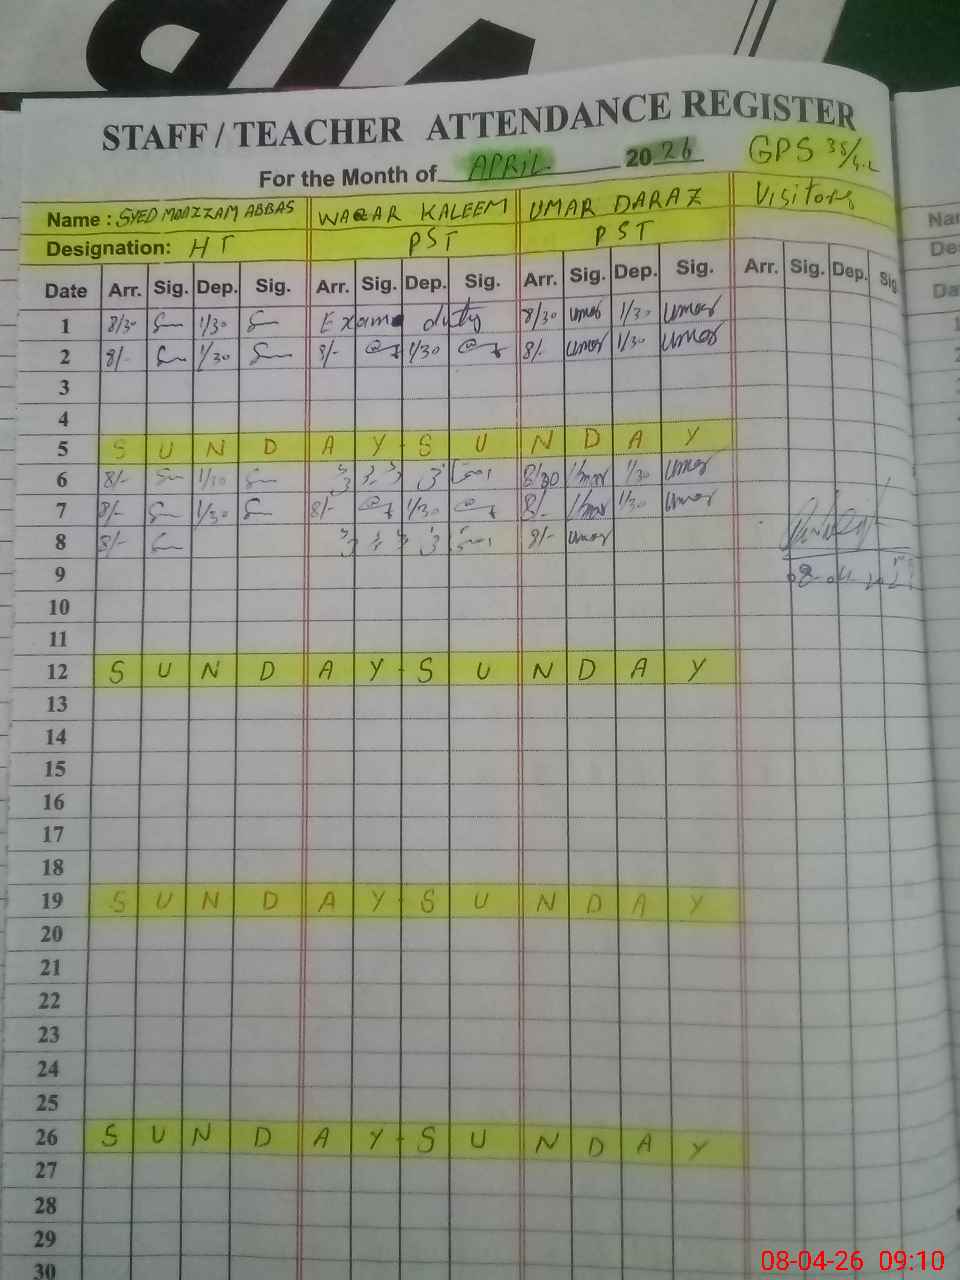 STAFF / TEACHER ATTENDANCE REGISTER
For the Month of APRIL 2026 GPS 38/4.L
Name : SYED MOAZZAM ABBAS WAQAR KALEEM UMAR DARAZ Visitors
Designation: HT PST PST
Date Arr. Sig. Dep. Sig. Arr. Sig. Dep. Sig. Arr. Sig. Dep. Sig. Arr. Sig. Dep. Sig
1 8/30 1/30 Exam duty 8/30 umar 1/30 umar
2 8/- 1/30 8/- 1/30 8/- umar 1/30 umar
3
4
5 S U N D A Y - S U N D A Y
6 8/- 1/30 8/30 umar 1/30 umar
7 8/- 1/30 8/- 1/30 8/- umar 1/30 umar
8 8/- 8/- umar
9
10
11
12 S U N D A Y - S U N D A Y
13
14
15
16
17
18
19 S U N D A Y - S U N D A Y
20
21
22
23
24
25
26 S U N D A Y - S U N D A Y
27
28
29
30
08-04-26 09:10